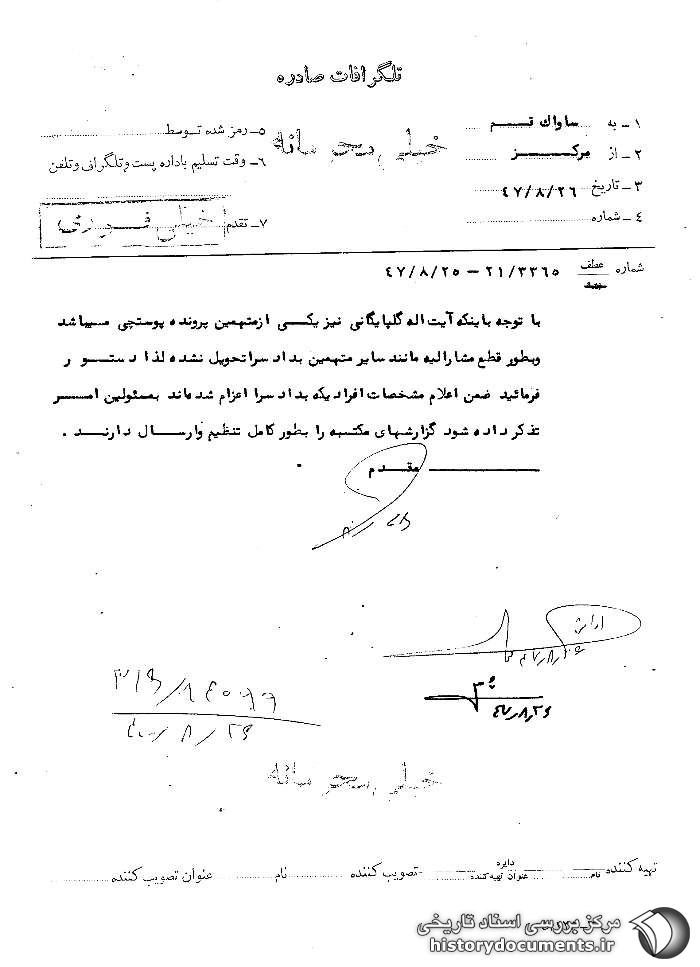 تلگرافات صادره
۱ـ به ساواك قم
۲ـ از مركز
۳ـ تاریخ ۴۷/۸/۲۶
۴ـ شماره
خیلی محرمانه
۵ـ رمز شده توسط
۶ـ وقت تسلیم باداره پست و تلگراف و تلفن
۷ـ تقدم خیلی فوری
شماره عطف ۲۱/۳۳۶۵ - ۴۷/۸/۲۵
با توجه باینكه آیت اله گلپایگانی نیز یكی ازمتهمین پرونده پوستچی میباشد
وبطور قطع مشارالیه مانند سایر متهمین بدادسرا تحویل نشده لذا دستور
فرمائید ضمن اعلام مشخصات افرادیكه بدادسرا اعزام شده‌اند بمسئولین امر
تذكر داده شود گزارشهای مكتسبه را بطور كامل تنظیم وارسال دارند .
مقدم
۴۷/۸/۲۶
خیلی محرمانه
تهیه كننده نام دایره عنوان تهیه كننده تصویب كننده نام عنوان تصویب كننده
مرکز بررسی اسناد تاریخی
historydocuments.ir